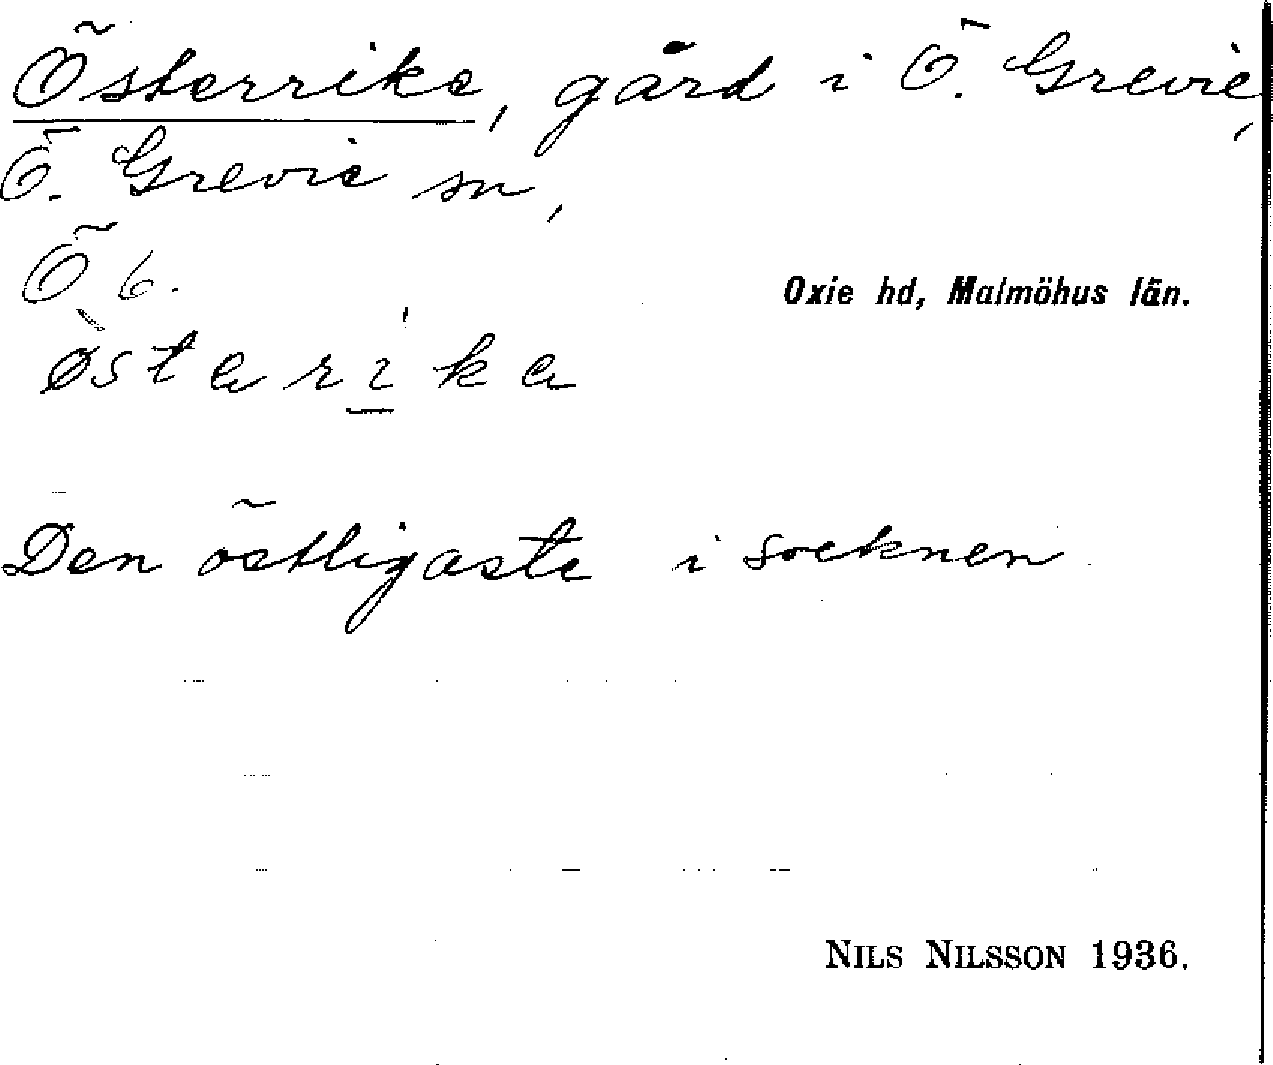 Österrike, gård i Ö. Grevie,
Ö. Grevie sn,
Ö 6.
Oxie hd, Malmöhus län.
østarika
Den östligaste i socknen
NILS NILSSON 1936.